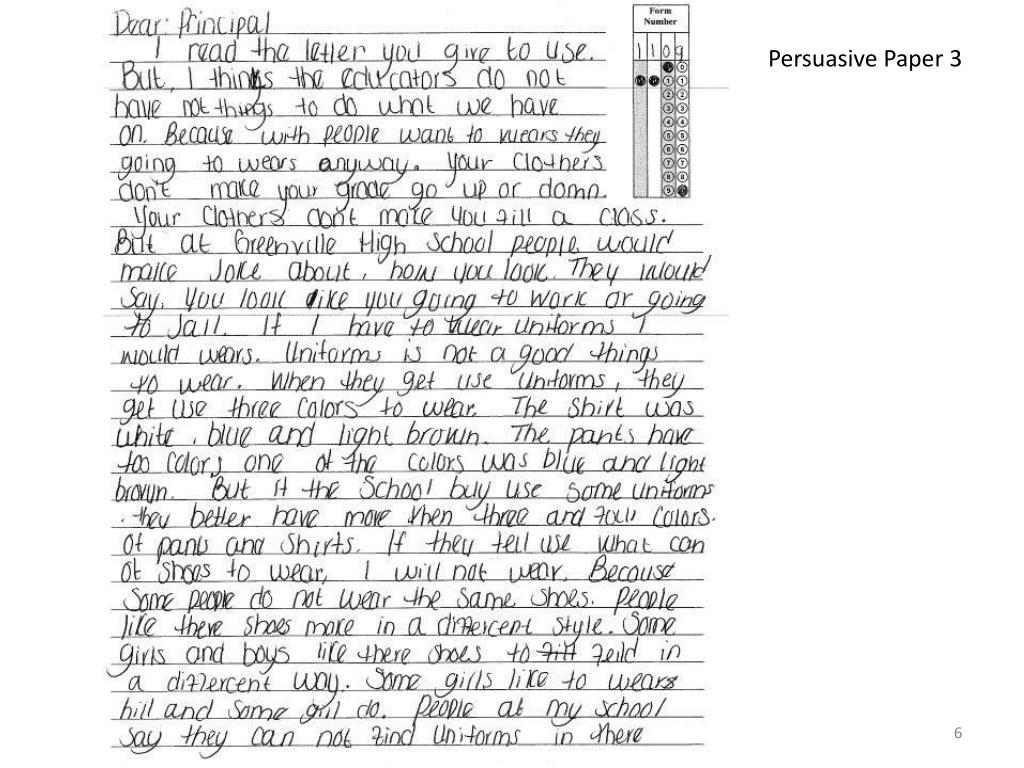 Dear: Principal
I read the letter you give to use.
But, I thinks the educators do not
have not things to do what we have
on. Because with people want to wears they
going to wears anyway. Your Clothers
don't make your grade go up or down.
Your Clothers don't make you fill a class.
But at Greenville High School people would
make Joke about, how you look. They would
say, you look like you going to work or going
to Jail. If I have to wear uniforms I
would wears. Uniforms is not a good things
to wear. When they get use uniforms, they
get use three Colors to wear. The Shirt was
white, blue and light brown. The pants have
too Colors one of the colors was blue and light
brown. But if the School buy use some uniforms
. they better have more then three and four Colors.
of pants and Shirts. If they tell use what can
of shoes to wear, I will not wear. Because
Some people do not wear the same shoes. People
like there shoes make in a differcent style. Some
girls and boys like there shoes to feild in
a differcent way. Some girls like to wears
hill and some gril do. People at my school
say they can not find uniforms in there
Form
Number
1 1 0 9
0 0
1 1 1 1
2 2
3 3
4 4
5 5
6 6
7 7
8 8
9 9
Persuasive Paper 3
6